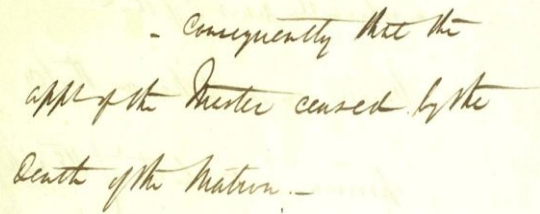 - Consequently that the
appt of the Master ceased by the
Death of the Matron. -